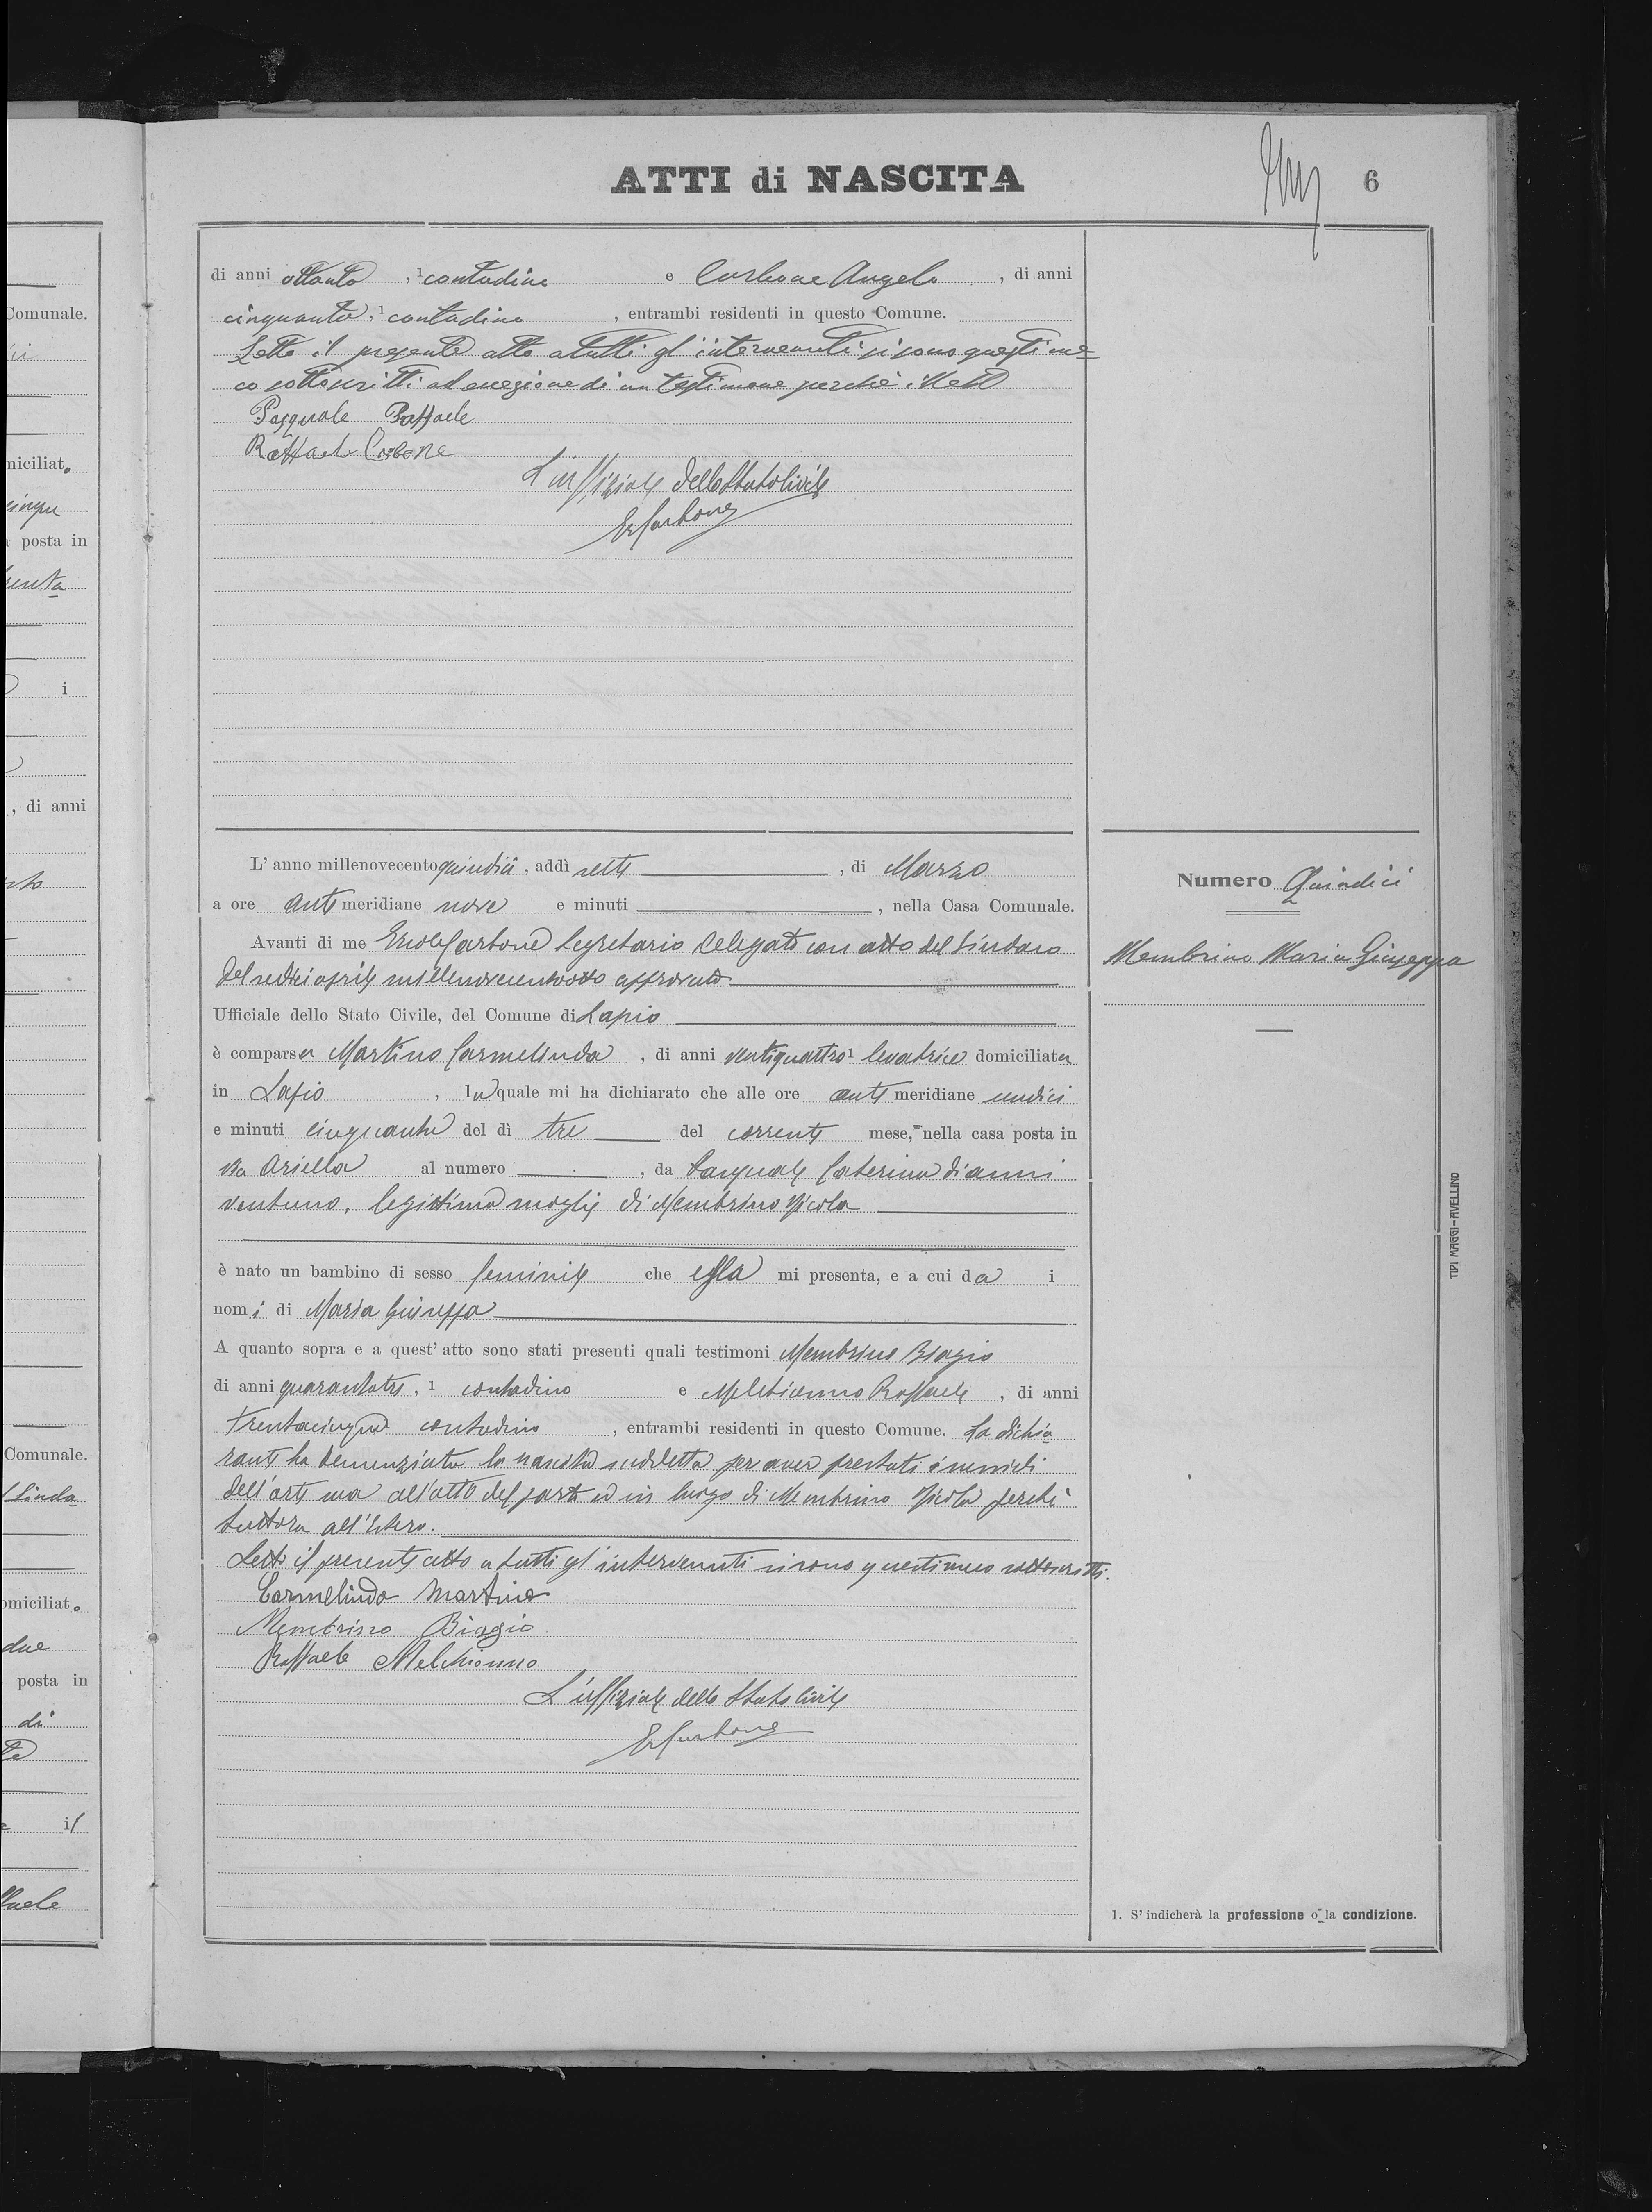 ATTI di NASCITA
6
di anni ottanta, ¹ contadino e Carbone Angelo, di anni
cinquanta, ¹ contadino, entrambi residenti in questo Comune.
Letto il presente atto a tutti gl'intervenuti si sono questi me=
co sottoscritti ad eccezione di un testimone perchè illett
Pasquale Raffaele
Raffaele Carbone
L'uffiziale dello Stato Civile
E. Carbone
L'anno millenovecentoquindici, addì sette, di Marzo
a ore antimeridiane nove e minuti, nella Casa Comunale.
Avanti di me Ercole Carbone Segretario Delegato con atto del Sindaco
del sedici aprile millenovecentootto approvato
Ufficiale dello Stato Civile, del Comune di Lapio
è comparsa Martino Carmelinda, di anni ventiquattro ¹ levatrice domiciliata
in Lapio, la quale mi ha dichiarato che alle ore antimeridiane undici
e minuti cinquanta del dì tre del corrente mese, nella casa posta in
via Ariella al numero, da Pasquale Caterina di anni
ventuno, legittima moglie di Membrino Nicola
è nato un bambino di sesso feminile che essa mi presenta, e a cui da i
nomi di Maria Giuseppa
A quanto sopra e a quest'atto sono stati presenti quali testimoni Membrino Biagio
di anni quarantatre, ¹ contadino e Melchionno Raffaele, di anni
trentacinque contadino, entrambi residenti in questo Comune. La dichia
rante ha denunziato la nascita suddetta per aver prestati i
dell'arte sua all'atto del parto ed in luogo di Membrino Nicola perchè
tuttora all'Estero.
Letto il presente atto a tutti gl'intervenuti si sono questi meco sottoscritti.
Carmelinda Martino
Membrino Biagio
Raffaele Melchionno
L'uffiziale dello Stato Civile
E. Carbone
Numero Quindici
Membrino Maria Giuseppa
1. S'indicherà la professione o la condizione.
TIPI MAGGI-AVELLINO
Comunale.
miciliat o
cinque
posta in
i
, di anni
Comunale.
Sinda
omiciliat o
due
posta in
di
il